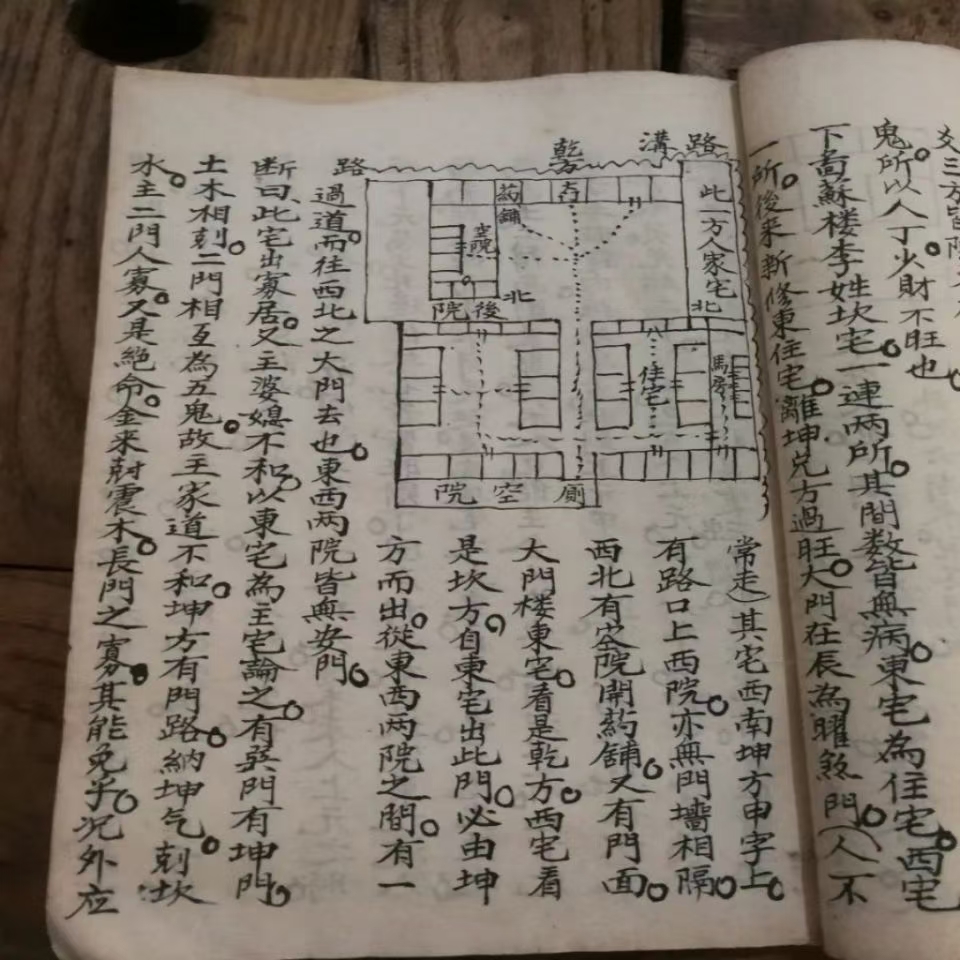 爻三方皆
鬼。所以人丁火財不旺也。
下面蘇楼李姓坎宅。一連两所。其間数皆無病。東宅為住宅。西宅
一所。後来新修東住宅。離坤兌方過旺。大門在辰為曜煞門。(人不
常走)其宅西南坤方申字上。
有路口上西院。亦無門墻相隔。
西北有空院開葯舖。又有門面。
大門楼東宅。看是乾方。西宅看
是坎方。自東宅出此門。必由坤
方而出。從東西两院之間。有一
過道。而往西北之大門去也。東西两院皆無安門。
断曰、此宅出寡居。又主婆媳不和。以東宅為主宅論之。有巽門有坤門。
土木相剋。二門相互為五鬼。故主家道不和。坤方有門路。納坤气。剋坎
水。主二門人寡。又是絶命。金来尅震木。長門之寡。其能免乎。况外应
路
溝
乾方
路
此一方人家宅
北
葯舖
空院
北
後院
住宅
馬房
空院
厠